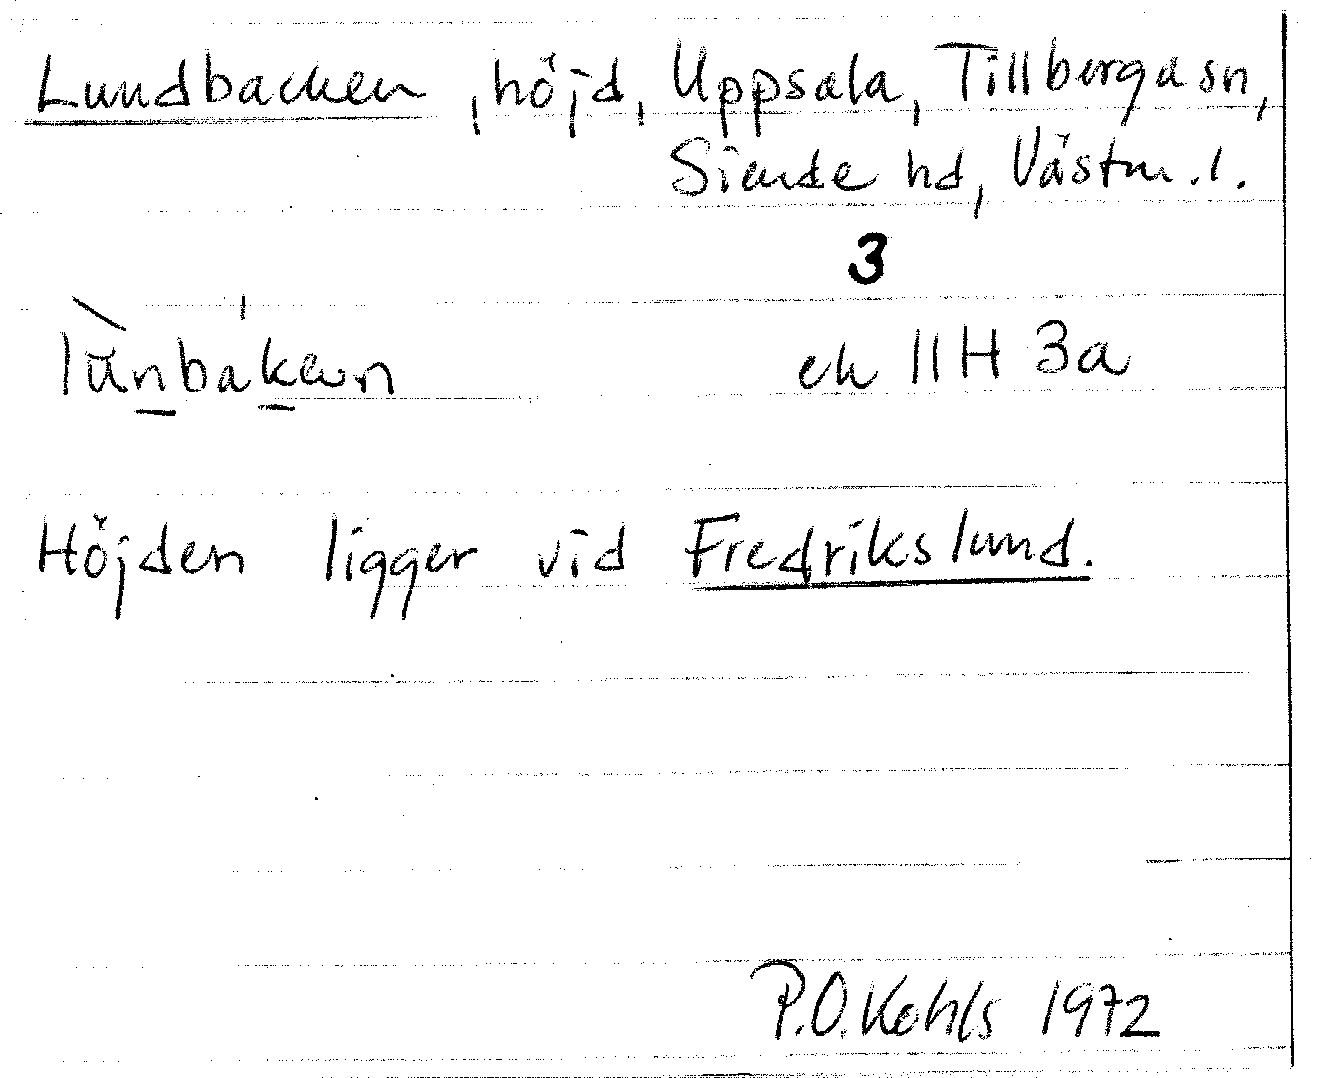 Lundbacken, höjd, Uppsala, Tillberga sn,
Siende hd, Västm. l.
3
ek 11H 3a
Höjden ligger vid Fredrikslund.
P.O. Kohls 1972